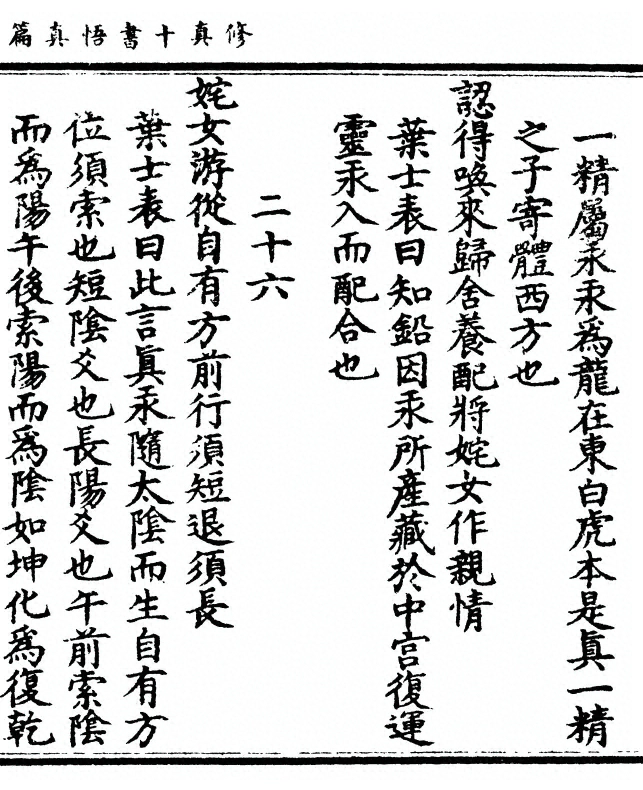 修真十書悟真篇
一精屬汞汞爲龍在東白虎本是眞一精
之子寄體西方也
認得喚來歸舍養配將姹女作親情
葉士表曰知鉛因汞所產藏於中宮復運
靈汞入而配合也
二十六
姹女游從自有方前行須短退須長
葉士表曰此言眞汞隨太陰而生自有方
位須索也短陰爻也長陽爻也午前索陰
而爲陽午後索陽而爲陰如坤化爲復乾